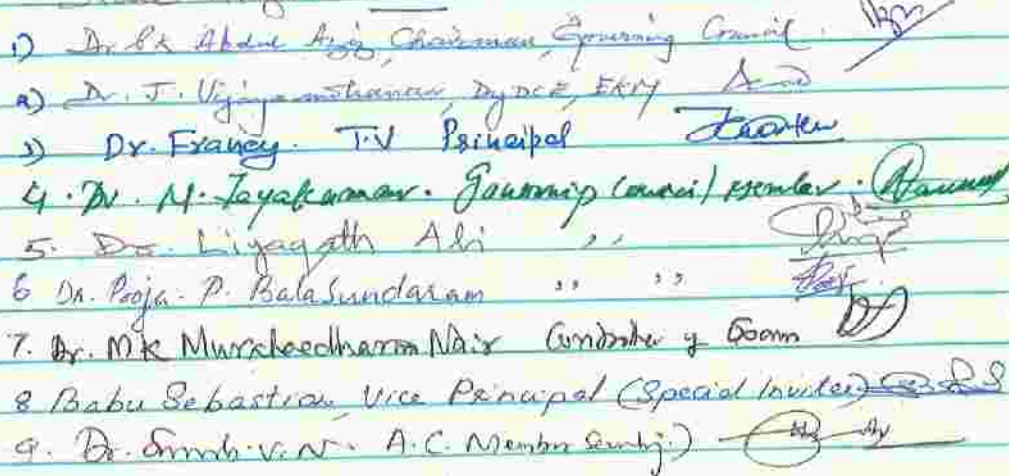 1) Dr. P.K Abdul Aziz, Chairman, Governing Council.
2) Dr. J. Vijayamohanan, Dy DCE, EKM
3) Dr. Francy. T.V Principal
4. Dr. M. Jayakumar. Governing Council member.
5. Dr. Liyagath Ali ,,
6 Dr. Pooja. P. Balasundaram ,, ,,
7. Dr. MK Muraleedharan Nair Controller of Exam
8 Babu Sebastian, Vice Principal (Special Invitee)
9. Dr. V.N. A.C. Member